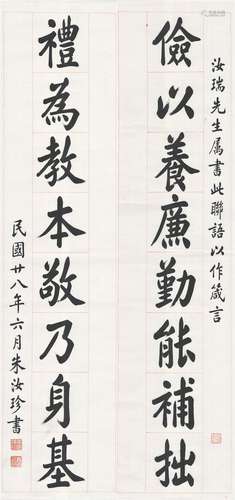 汝瑞先生属書此聯語以作箴言
儉以養廉勤能補拙
禮為教本敬乃身基
民國廿八年六月朱汝珍書